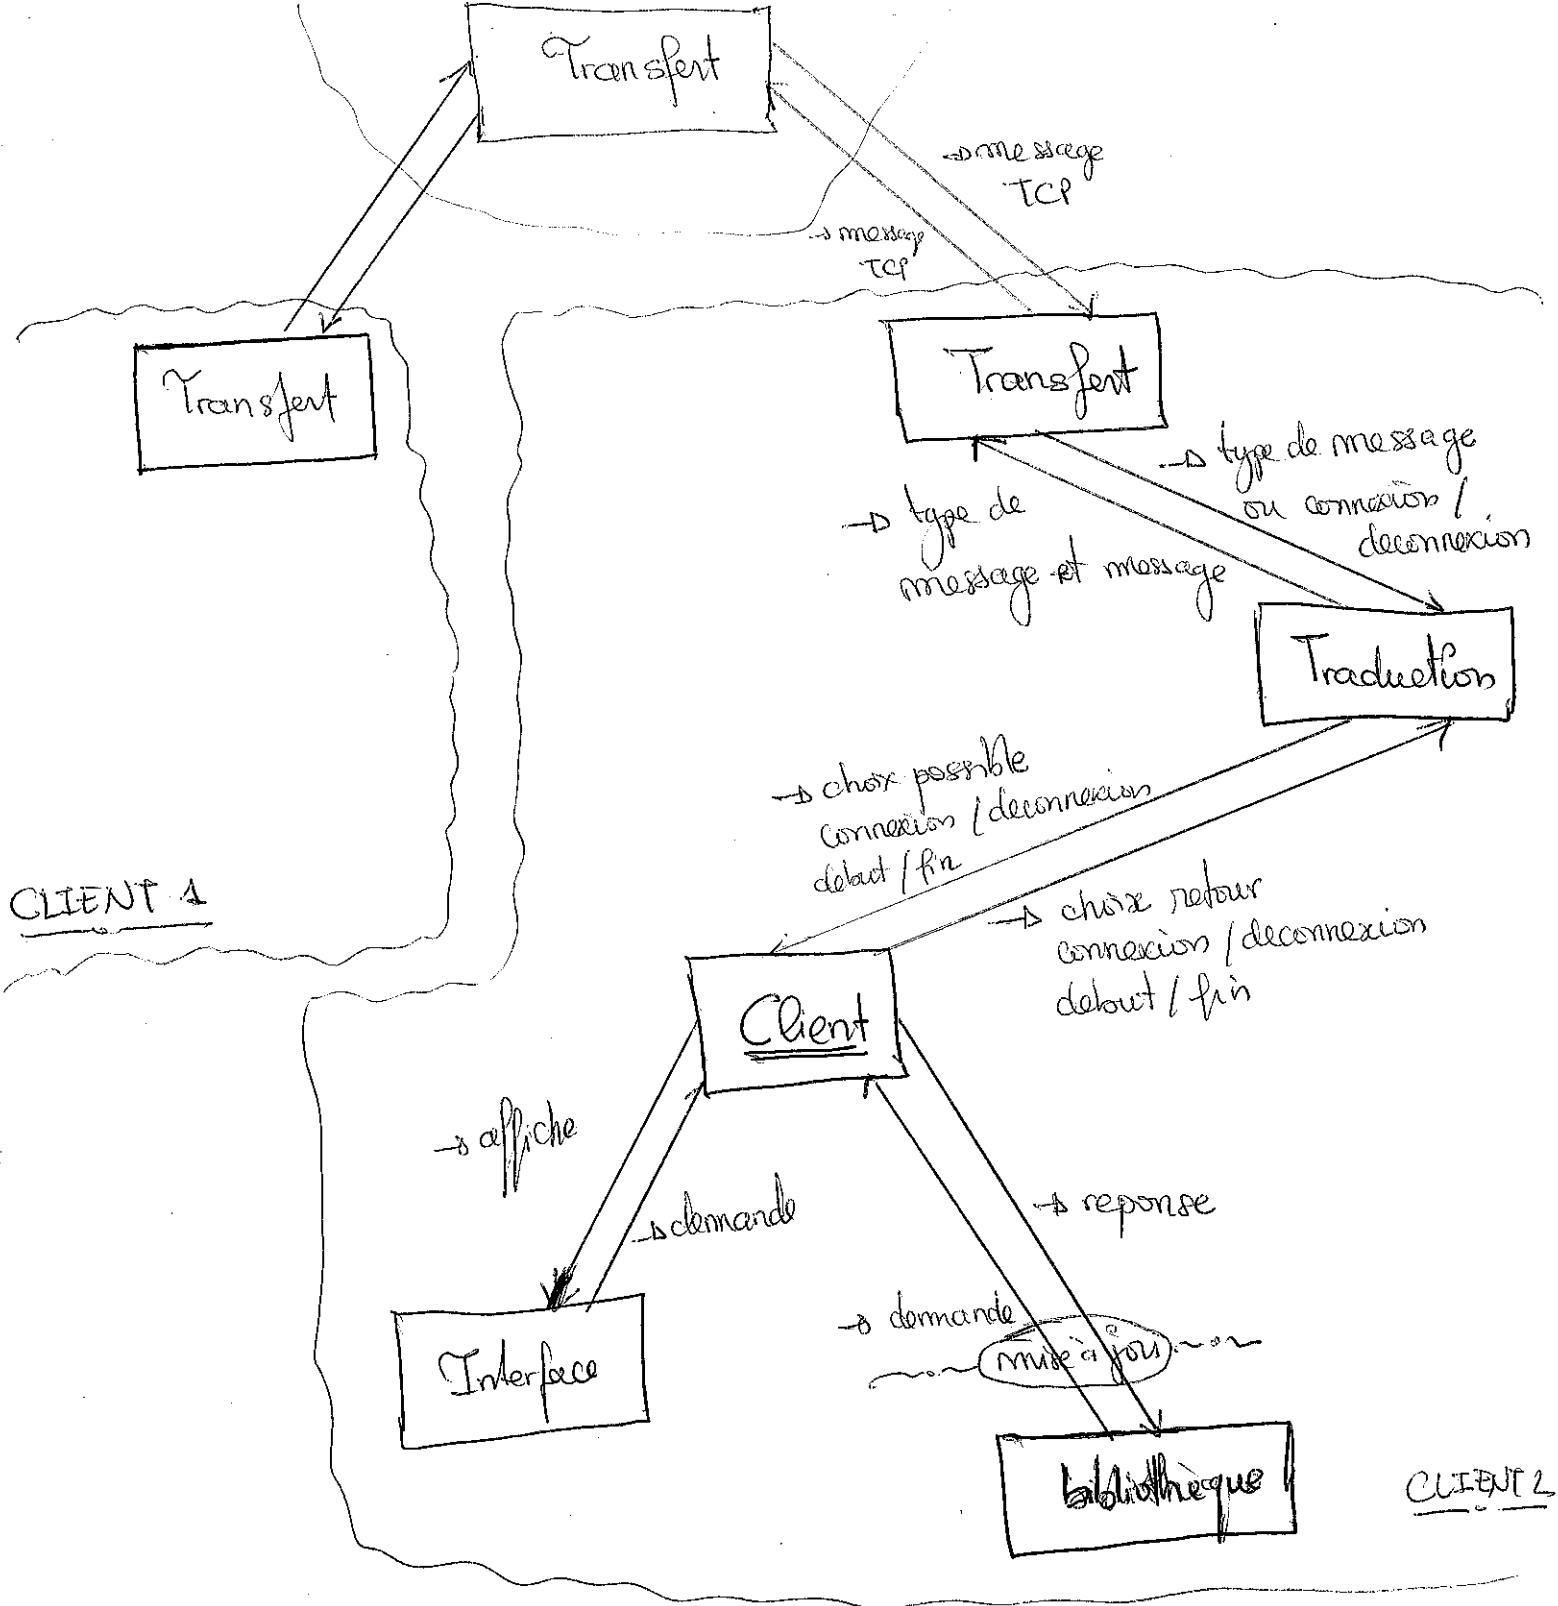 Transfert
→ message
TCP
→ message
TCP
Transfert
Transfert
→ type de message
ou connexion /
deconnexion
→ type de
message et message
Traduction
→ choix possible
connexion / deconnexion
debut / fin
CLIENT 1
→ choix retour
connexion / deconnexion
debut / fin
Client
→ affiche
→ demande
→ reponse
→ demande
mise à jou
Interface
bibliothèque
CLIENT 2